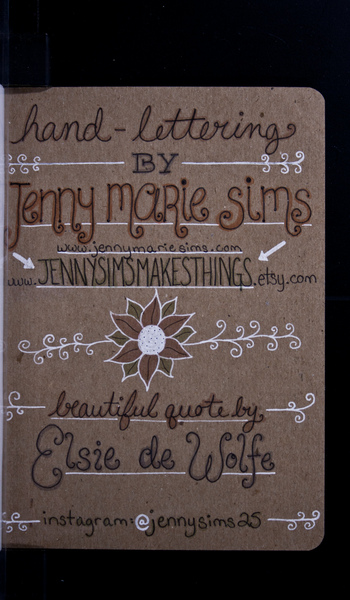 hand-lettering
BY
Jenny marie sims
www.jennymariesims.com
www.JENNYSIMSMAKESTHINGS.etsy.com
beautiful quote by
Elsie de Wolfe
instagram:@jennysims25